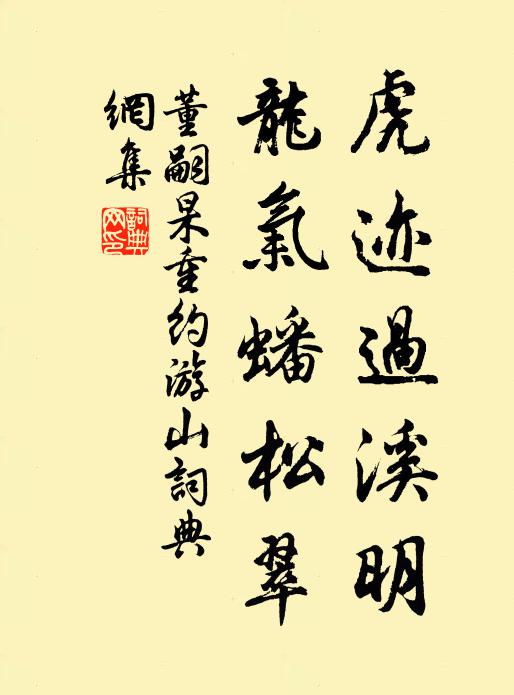 虎迹過溪明
龍氣蟠松翠
董嗣杲重約游山詞典
網集
詞典網印